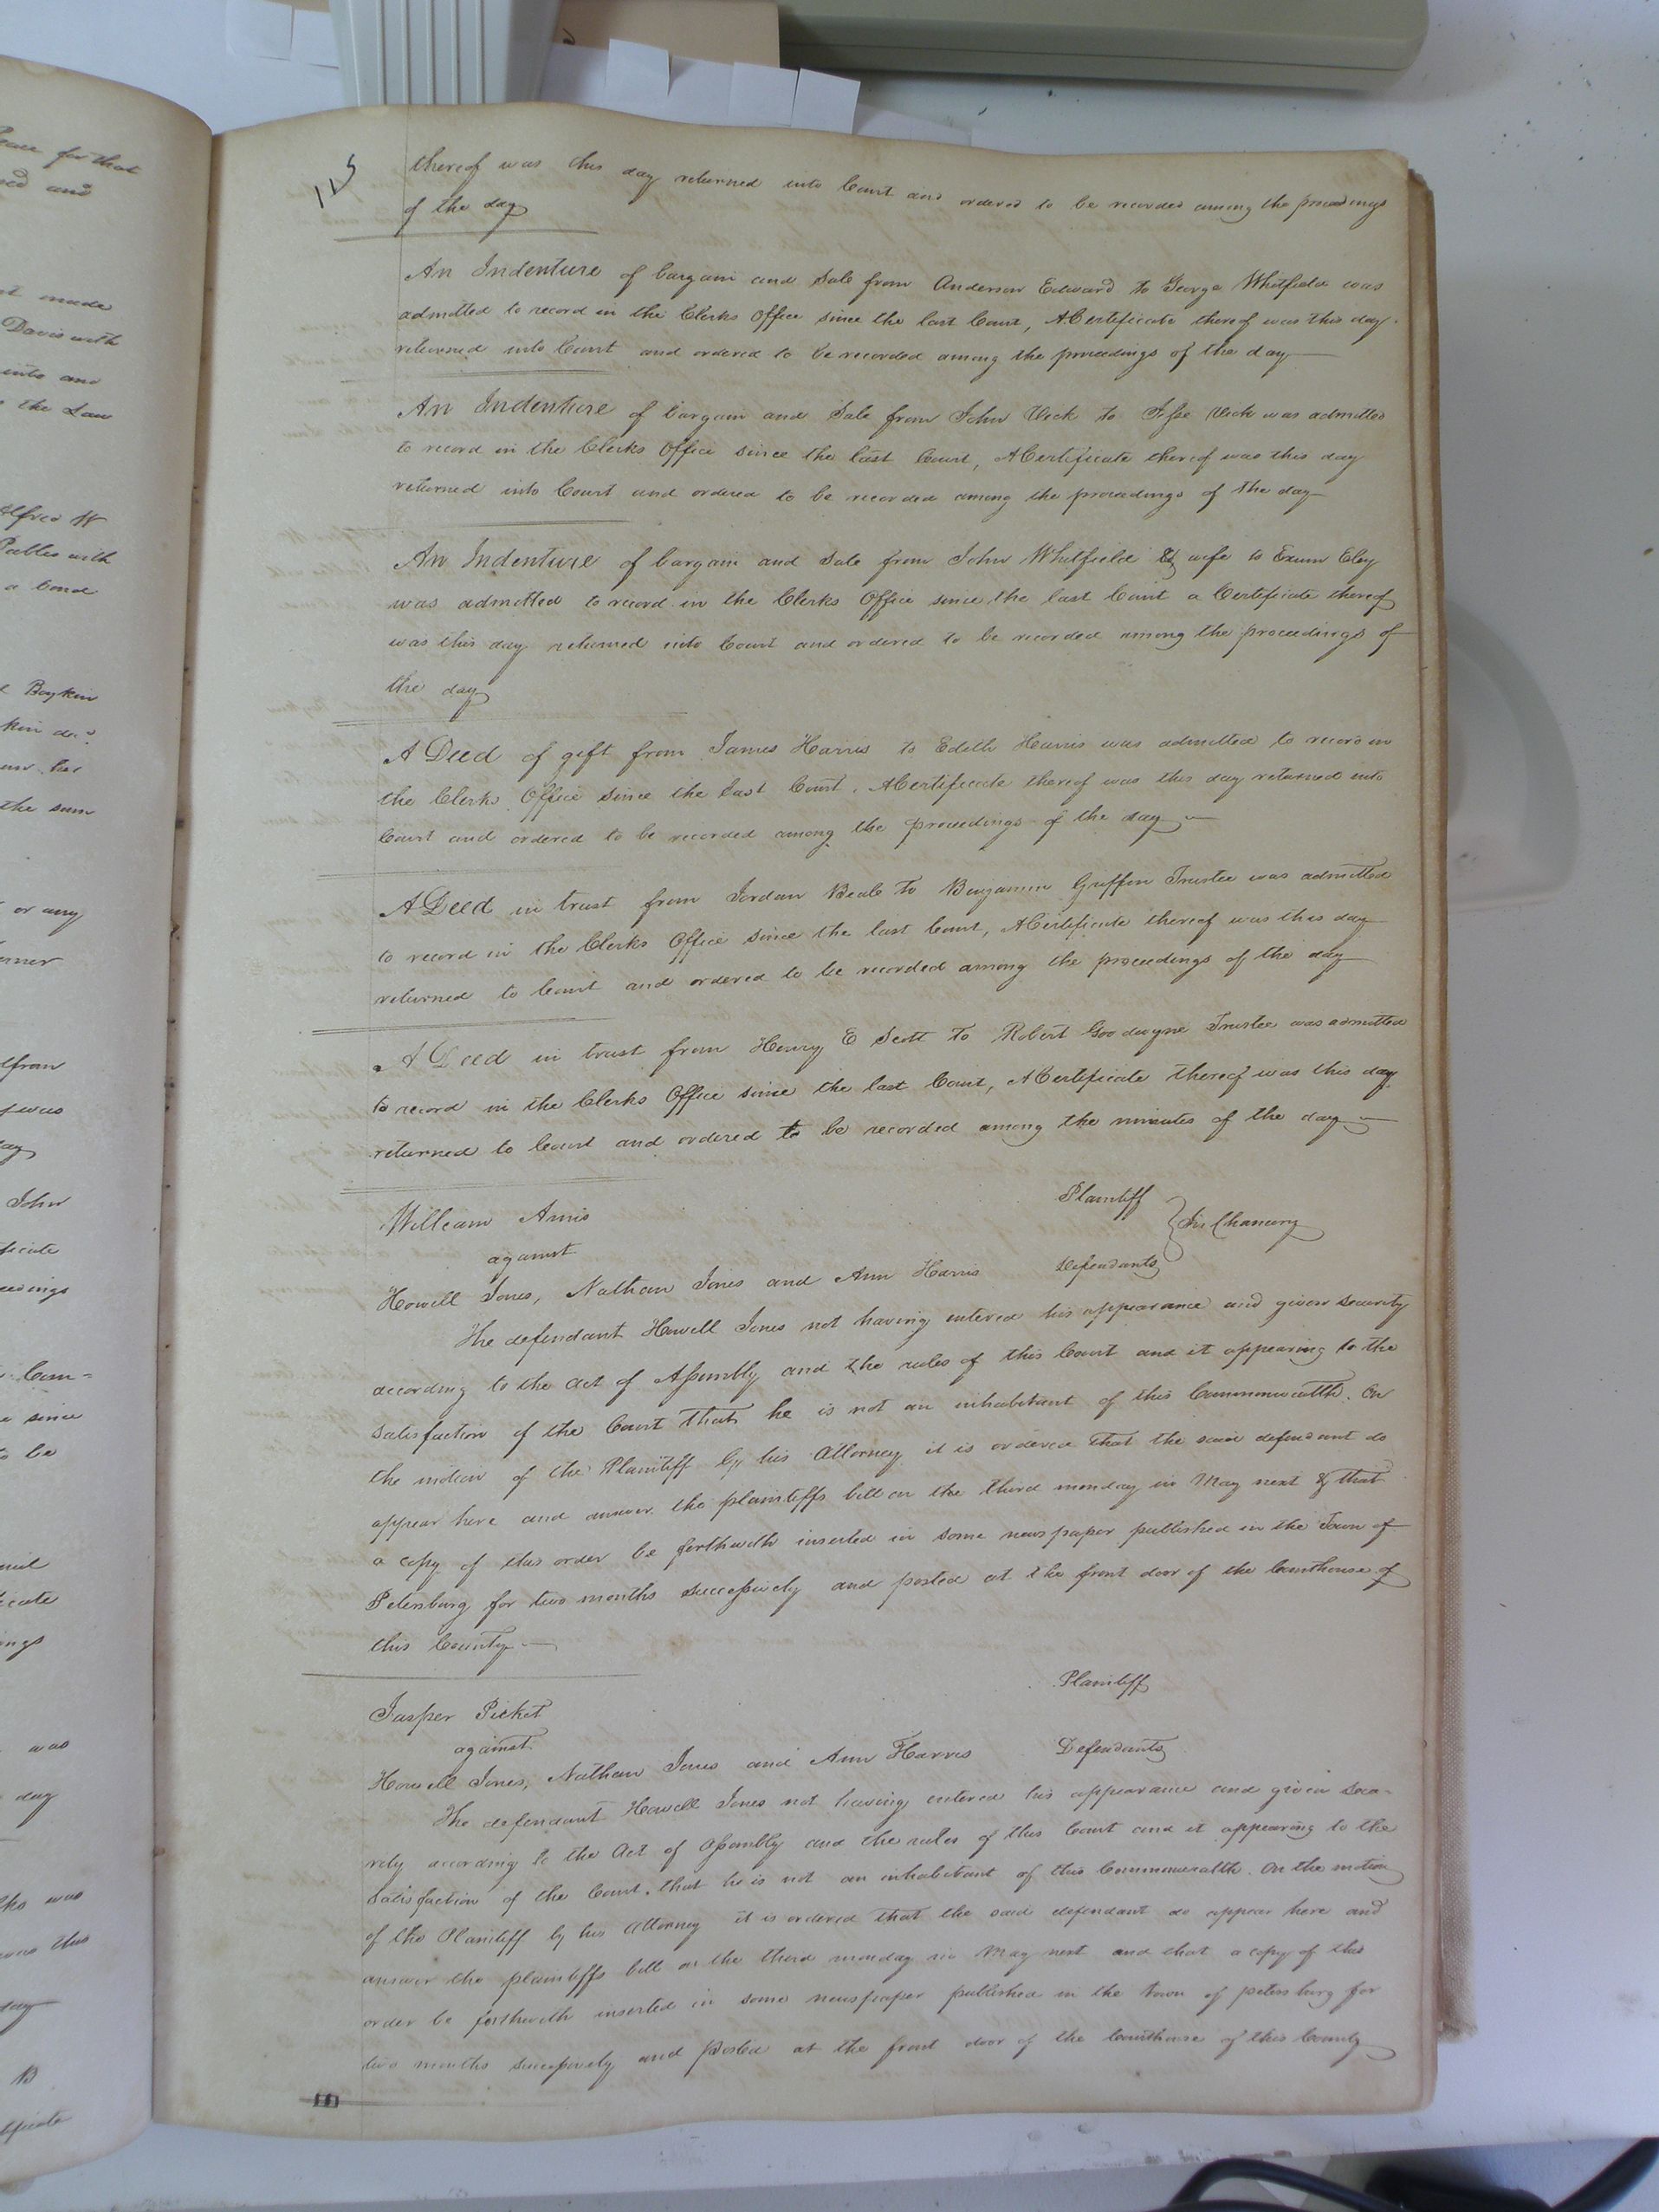 115
thereof was this day returned into Court and ordered to be recorded among the proceedings
of the day
An Indenture of bargain and Sale from Anderson Edward to George Whitfield was
admitted to record in the Clerks Office since the last Court, A Certificate thereof was this day
returned into Court and ordered to be recorded among the proceedings of the day
An Indenture of bargain and Sale from John Vick to Jesse Vick was admitted
to record in the Clerks Office since the last Court, A Certificate thereof was this day
returned into Court and ordered to be recorded among the proceedings of the day
An Indenture of bargain and Sale from John Whitfield & wife to Exum Eley
was admitted to record in the Clerks Office since the last Court a Certificate thereof
was this day returned into Court and ordered to be recorded among the proceedings of
the day
A Deed of gift from James Harris to Edith Harris was admitted to record in
the Clerks Office since the last Court. A Certificate thereof was this day returned into
Court and ordered to be recorded among the proceedings of the day
A Deed in trust from Jordan Beale to Benjamin Griffin Trustee was admitted
to record in the Clerks Office since the last Court, A Certificate thereof was this day
returned to Court and ordered to be recorded among the proceedings of the day
A Deed in trust from Henry E Scott to Robert Goodwyne Trustee was admitted
to record in the Clerks Office since the last Court, A Certificate thereof was this day
returned to Court and ordered to be recorded among the minutes of the day
William Amis Plaintiff
against In Chancery
Howell Jones, Nathan Jones and Ann Harris Defendants
The defendant Howell Jones not having entered his appearance and given security
according to the act of Assembly and the rules of this Court and it appearing to the
satisfaction of the Court that he is not an inhabitant of this Commonwealth. On
the motion of the Plaintiff by his Attorney it is ordered that the said defendant do
appear here and answer the plaintiffs bill on the third monday in May next & that
a copy of this order be forthwith inserted in some newspaper published in the Town of
Petersburg for two months successively and posted at the front door of the Courthouse of
this County
Jasper Picket Plaintiff
against
Howell Jones, Nathan Jones and Ann Harris Defendants
The defendant Howell Jones not having entered his appearance and given secu-
rity according to the Act of Assembly and the rules of this Court and it appearing to the
satisfaction of the Court that he is not an inhabitant of this Commonwealth. On the motion
of the Plaintiff by his Attorney it is ordered that the said defendant do appear here and
answer the plaintiffs bill on the third monday in May next and that a copy of this
order be forthwith inserted in some newspaper published in the town of petersburg for
two months successively and posted at the front door of the Courthouse of this County